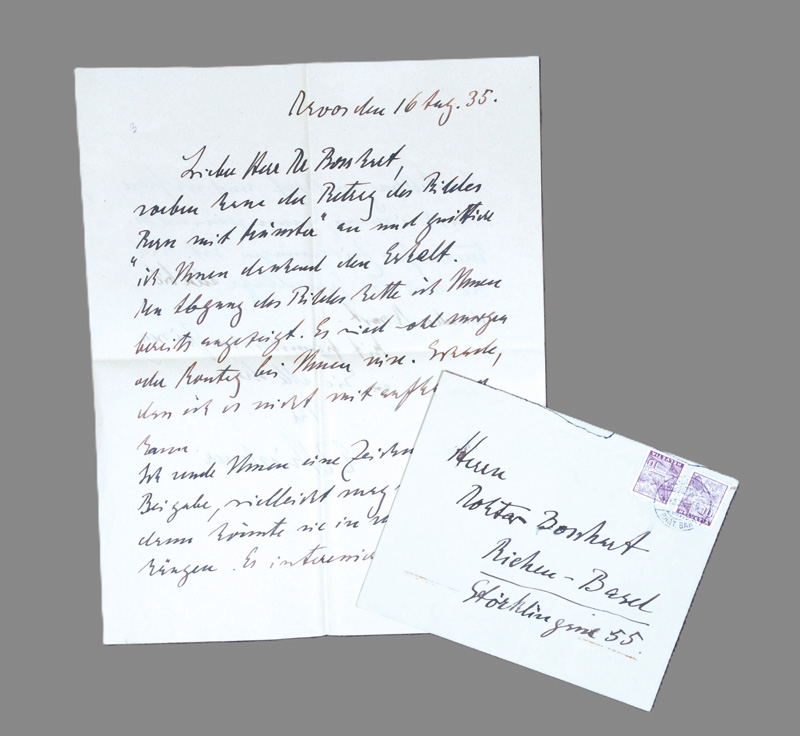 Davos den 16 Aug. 35.
Lieber Herr Dr Bosshart,
soeben kam der Betrag des Bildes
Bern mit Münster" an und quittiere
"ich Ihnen dankend den Erhalt.
Den Abgang des Bildes hatte ich Ihnen
bereits angezeigt. Es wird wohl morgen
oder Montag bei Ihnen sein. Schade,
dass ich es nicht mit
kann.
Ich sende Ihnen eine
Beigabe, vielleicht mag
dann könnte sie in
hängen. Es
Herrn
Doktor Bosshart
Riehen-Basel
55.
HELVETIA
HELVETIA